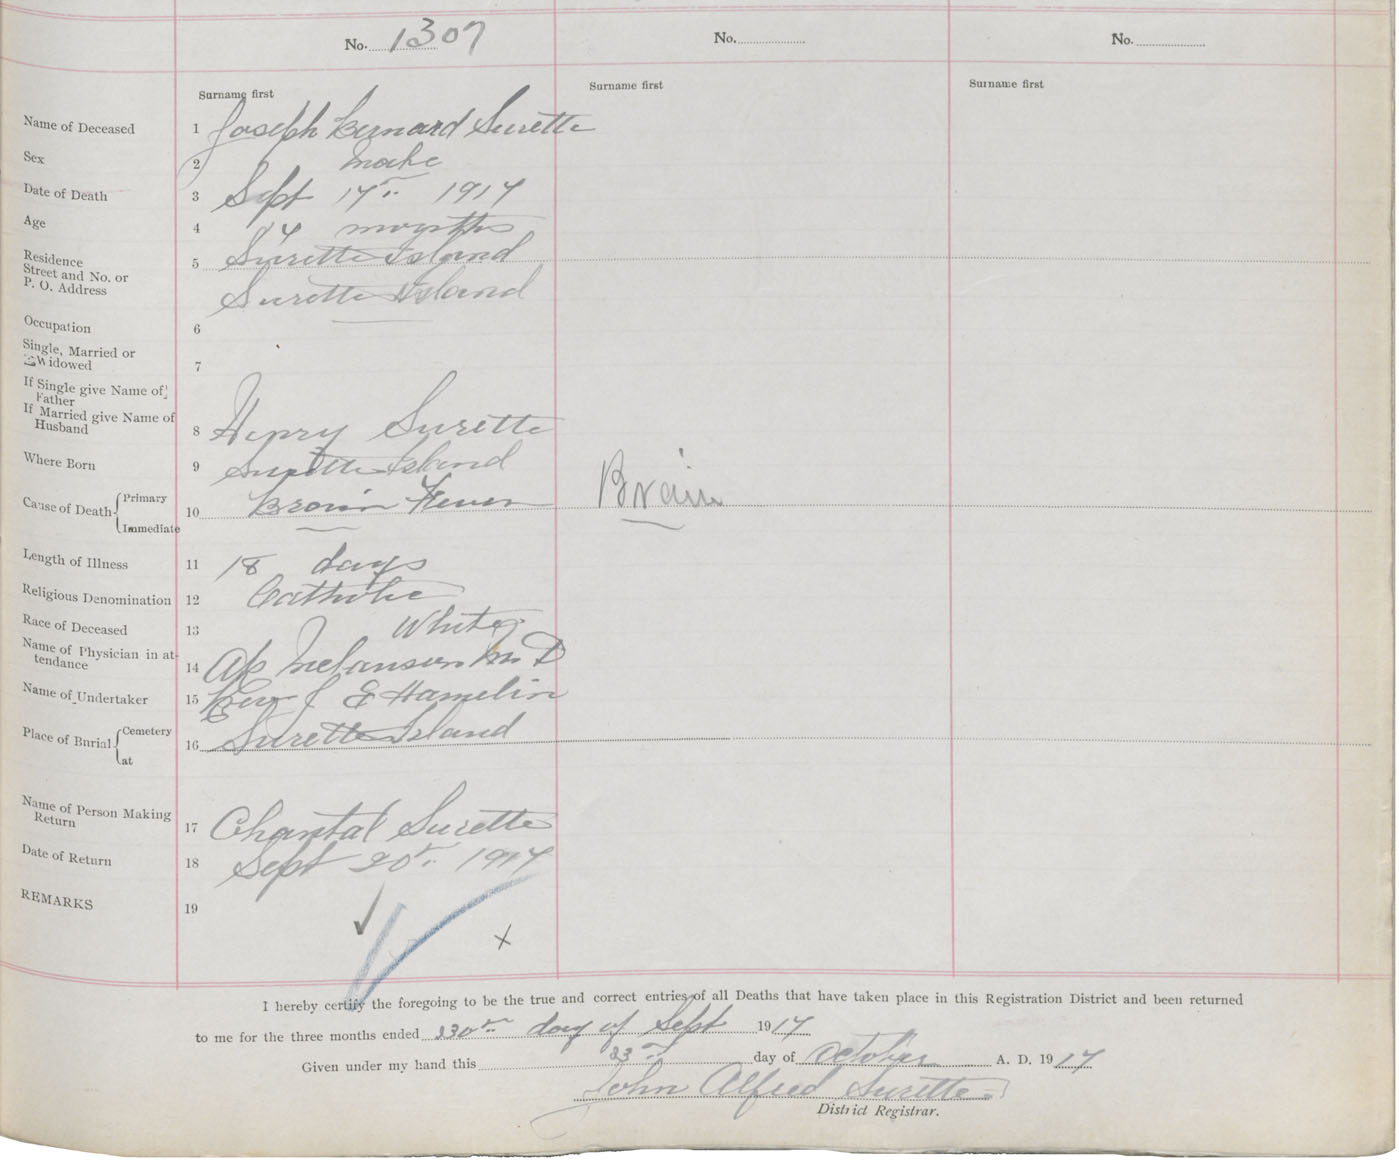 No. 1307
No.
No.
Surname first
Surname first
Surname first
Name of Deceased 1 Joseph Bernard Surette
Sex 2 Male
Date of Death 3 Sept 17th 1917
Age 4 14 months
Residence
Street and No. or
P. O. Address
5 Surette Island
Surette Island
Occupation 6
Single, Married or
Widowed
7
If Single give Name of
Father
If Married give Name of
Husband
8 Henry Surette
Where Born 9 Surette Island
Cause of Death { Primary
Immediate
10 Brain Fever Brain
Length of Illness 11 18 days
Religious Denomination 12 Catholic
Race of Deceased 13 White
Name of Physician in at-
tendance
14 Melanson M. D
Name of Undertaker 15 Rev J E Hamelin
Place of Burial { Cemetery
at
16 Surette Island
Name of Person Making
Return
17 Chantal Surette
Date of Return 18 Sept 20th 1917
REMARKS 19
I hereby certify the foregoing to be the true and correct entries of all Deaths that have taken place in this Registration District and been returned
to me for the three months ended day of Sept 1917
Given under my hand this 23rd day of October A. D. 1917
John Alfred Surette
District Registrar.